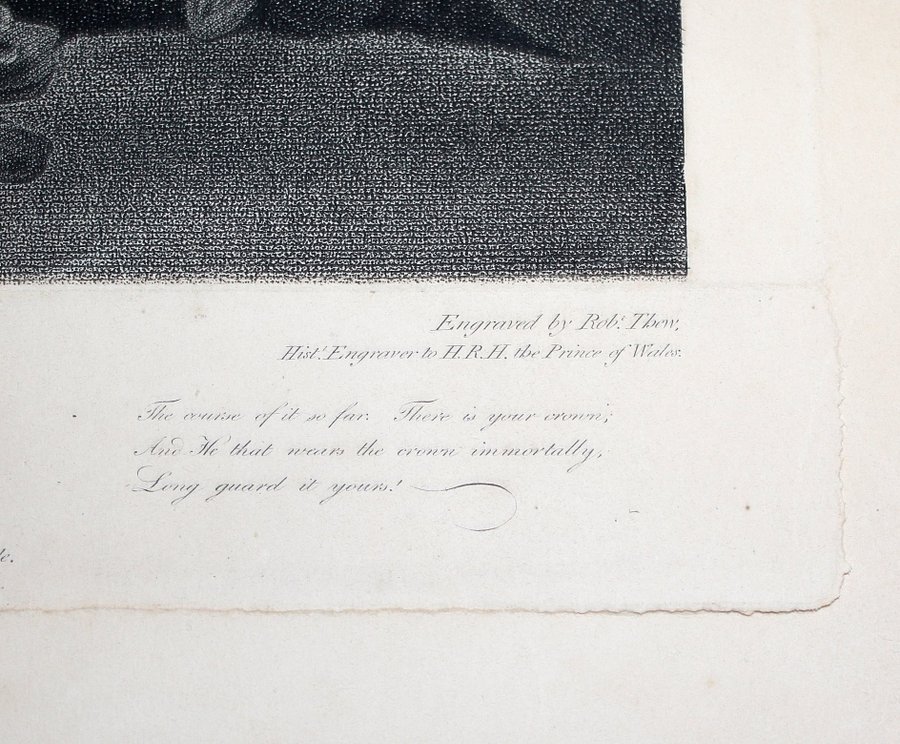 Engraved by Robt. Thew,
Histl. Engraver to H.R.H. the Prince of Wales.
The course of it so far. There is your crown;
And He that wears the crown immortally,
Long guard it yours!